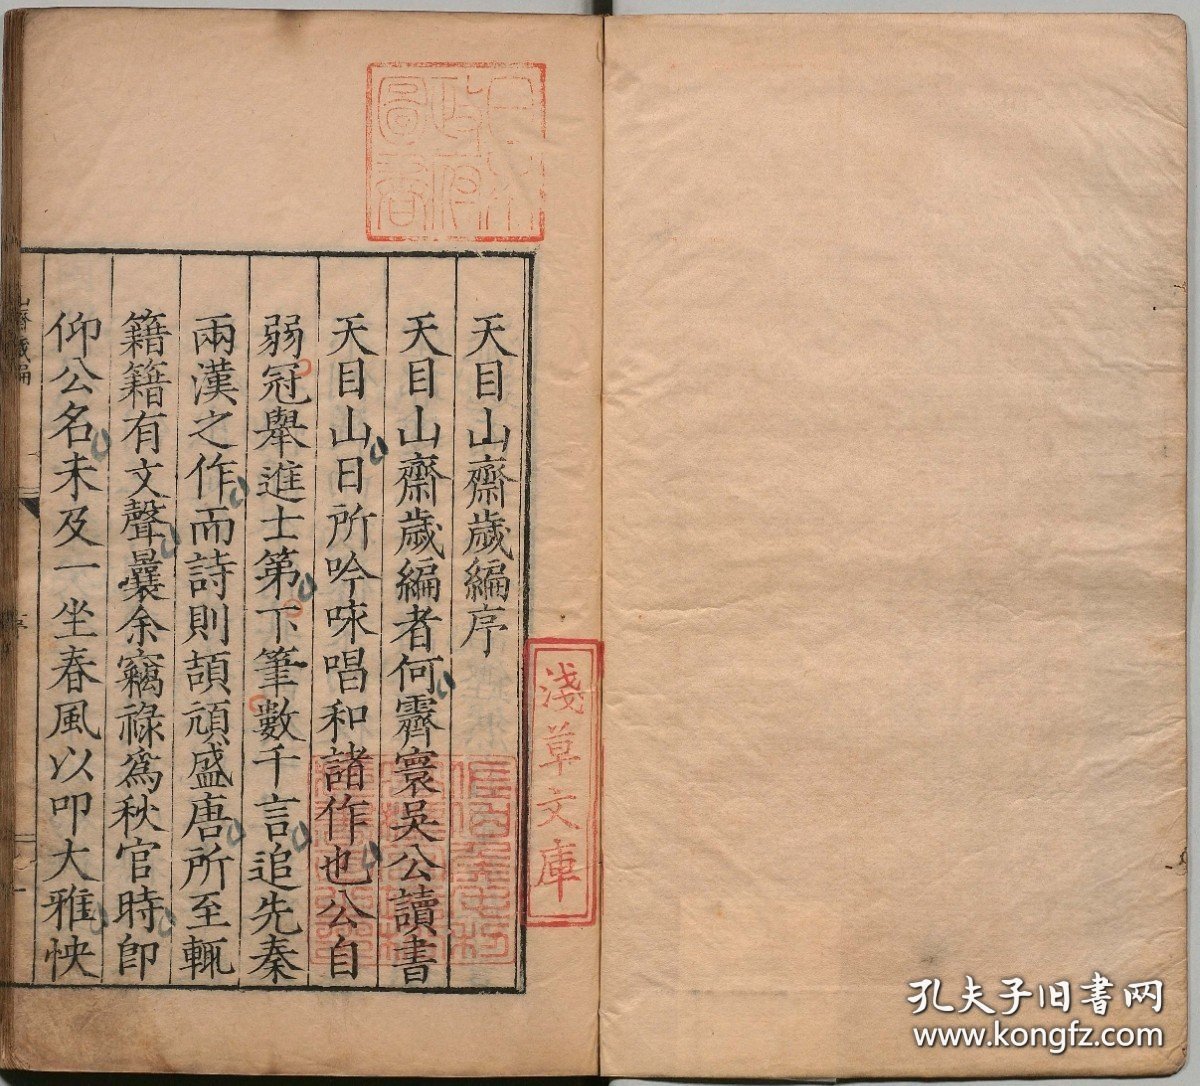 天目山齋歲編序
天目山齋歲編者何霽寰吳公讀書
天目山日所吟咏唱和諸作也公自
弱冠舉進士第下筆數千言追先秦
兩漢之作而詩則頡頏盛唐所至輒
籍籍有文聲曩余竊祿爲秋官時即
仰公名未及一坐春風以叩大雅怏
山齋歲編
序
日本政府圖書
淺草文庫
孔夫子旧书网
www.kongfz.com